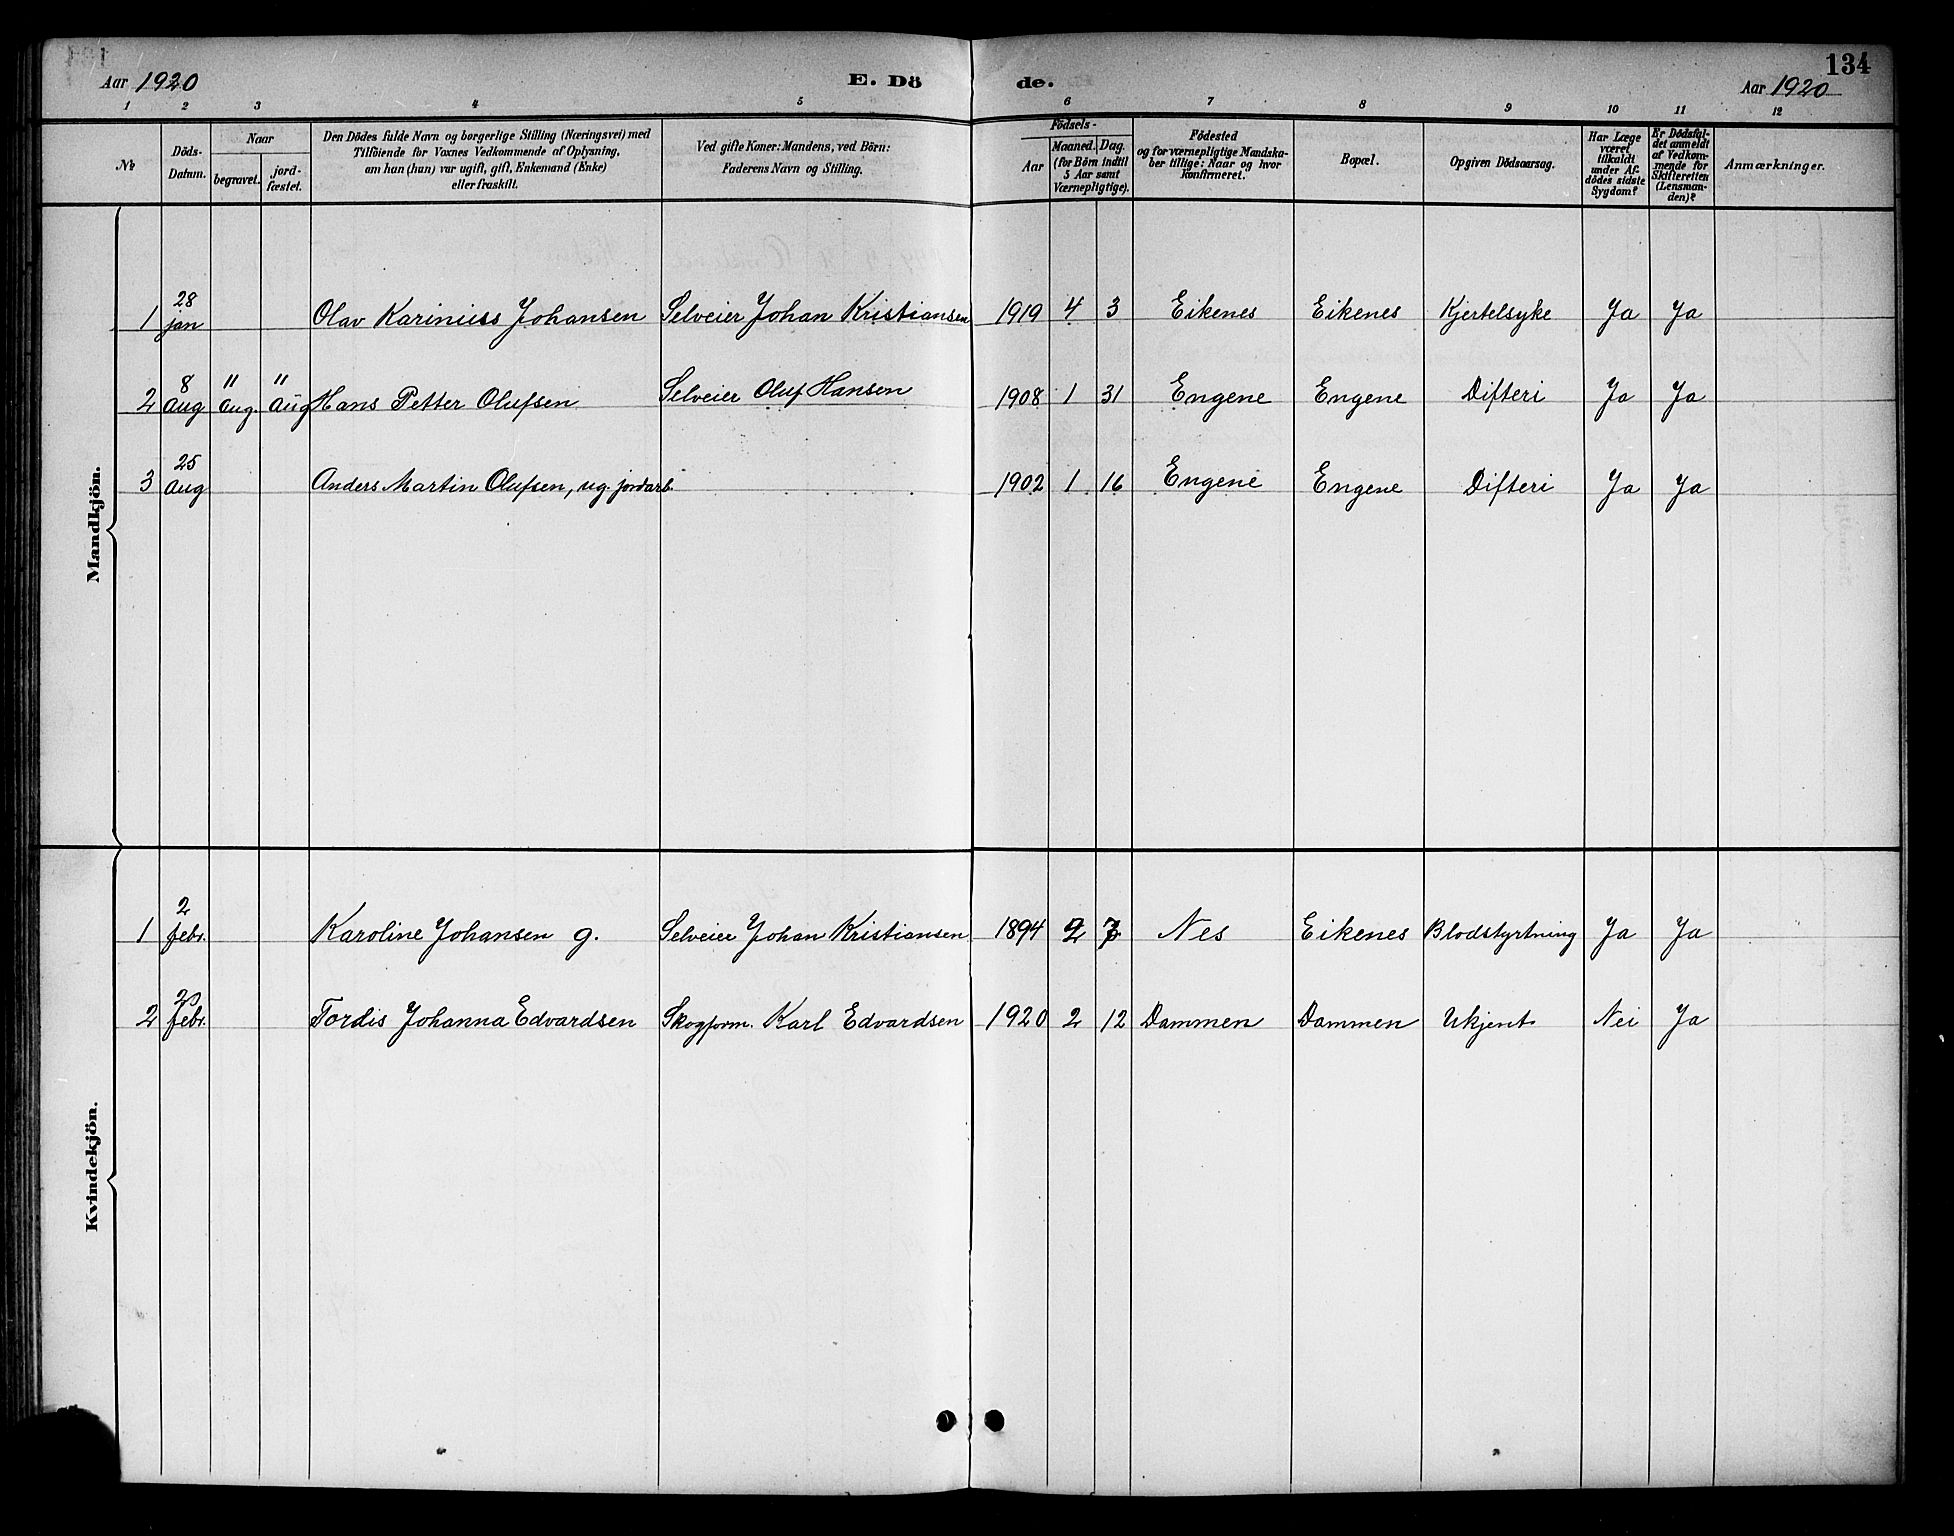 134
Aar 1920 E. Dö de. Aar 1920
1 2 3 4 5 6 7 8 9 10 11 12
No
Döds-
Datum.
Naar
begravet. jord-
fæstet.
Den Dödes fulde Navn og borgerlige Stilling (Næringsvei) med
Tilföiende for Voxnes Vedkommende af Oplysning,
om han (hun) var ugift, gift, Enkemand (Enke)
eller fraskilt.
Ved gifte Koner: Mandens, ved Börn:
Faderens Navn og Stilling.
Födsels-
Aar Maaned. Dag.
(for Börn indtil
5 Aar samt
Værnepligtige).
Födested
og for værnepligtige Mandska-
ber tillige: Naar og hvor
Konfirmeret.
Bopæl.
Opgiven Dödsaarsag.
Har Læge
været
tilkaldt
under Af-
dödes sidste
Sygdom?
Er Dödsfal-
det anmeldt
af Vedkom-
mende for
Skifteretten
(Lensman-
den)?
Anmærkninger.
Mandkjön.
1 28 jan Olav Kariniuss Johansen Selveier Johan Kristiansen 1919 4 3 Eikenes Eikenes Kjertelsyke Ja Ja
2 8 Aug 11 Aug. 11 Aug Hans Petter Olufsen Selveier Oluf Hansen 1908 1 31 Engene Engene Difteri Ja Ja
3 25 Aug Anders Martin Olufsen, ug. jordarb. 1902 1 16 Engene Engene Difteri Ja Ja
Kvindekjön.
1 2 febr. Karoline Johansen g. Selveier Johan Kristiansen 1894 Nes Eikenes Blodstyrtning Ja Ja
2 20 febr. Tordis Johanna Edvardsen Skogform. Karl Edvardsen 1920 2 12 Dammen Dammen Ukjent Nei Ja